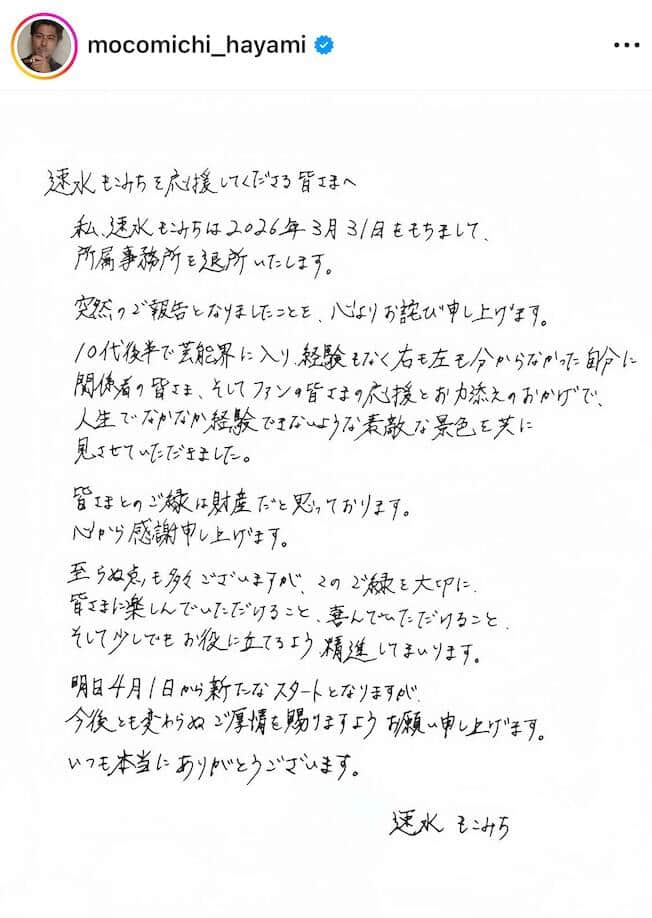 mocomichi_hayami
速水もこみちを応援してくださる皆さまへ
私、速水もこみちは2026年3月31日をもちまして、
所属事務所を退所いたします。
突然のご報告となりましたことを、心よりお詫び申し上げます。
10代後半で芸能界に入り、経験もなく右も左も分からなかった自分に
関係者の皆さま、そしてファンの皆さまの応援とお力添えのおかげで、
人生でなかなか経験できないような素敵な景色を共に
見させていただきました。
皆さまとのご縁は財産だと思っております。
心から感謝申し上げます。
至らぬ点も多々ございますが、このご縁を大切に、
皆さまに楽しんでいただけること、喜んでいただけること、
そして少しでもお役に立てるよう精進してまいります。
明日4月1日から新たなスタートとなりますが、
今後とも変わらぬご厚情を賜りますようお願い申し上げます。
いつも本当にありがとうございます。
速水もこみち